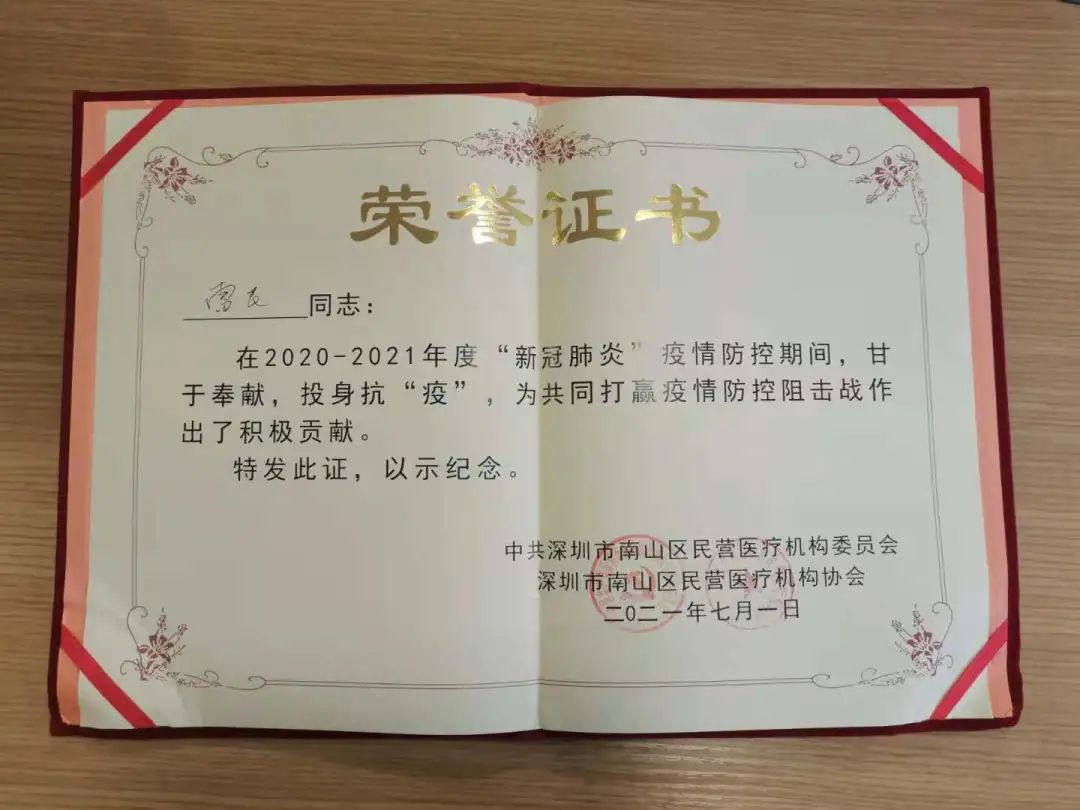 荣誉证书
同志：
在2020-2021年度“新冠肺炎”疫情防控期间，甘
于奉献，投身抗“疫”，为共同打赢疫情防控阻击战作
出了积极贡献。
特发此证，以示纪念。
中共深圳市南山区民营医疗机构委员会
深圳市南山区民营医疗机构协会
二0二一年七月一日